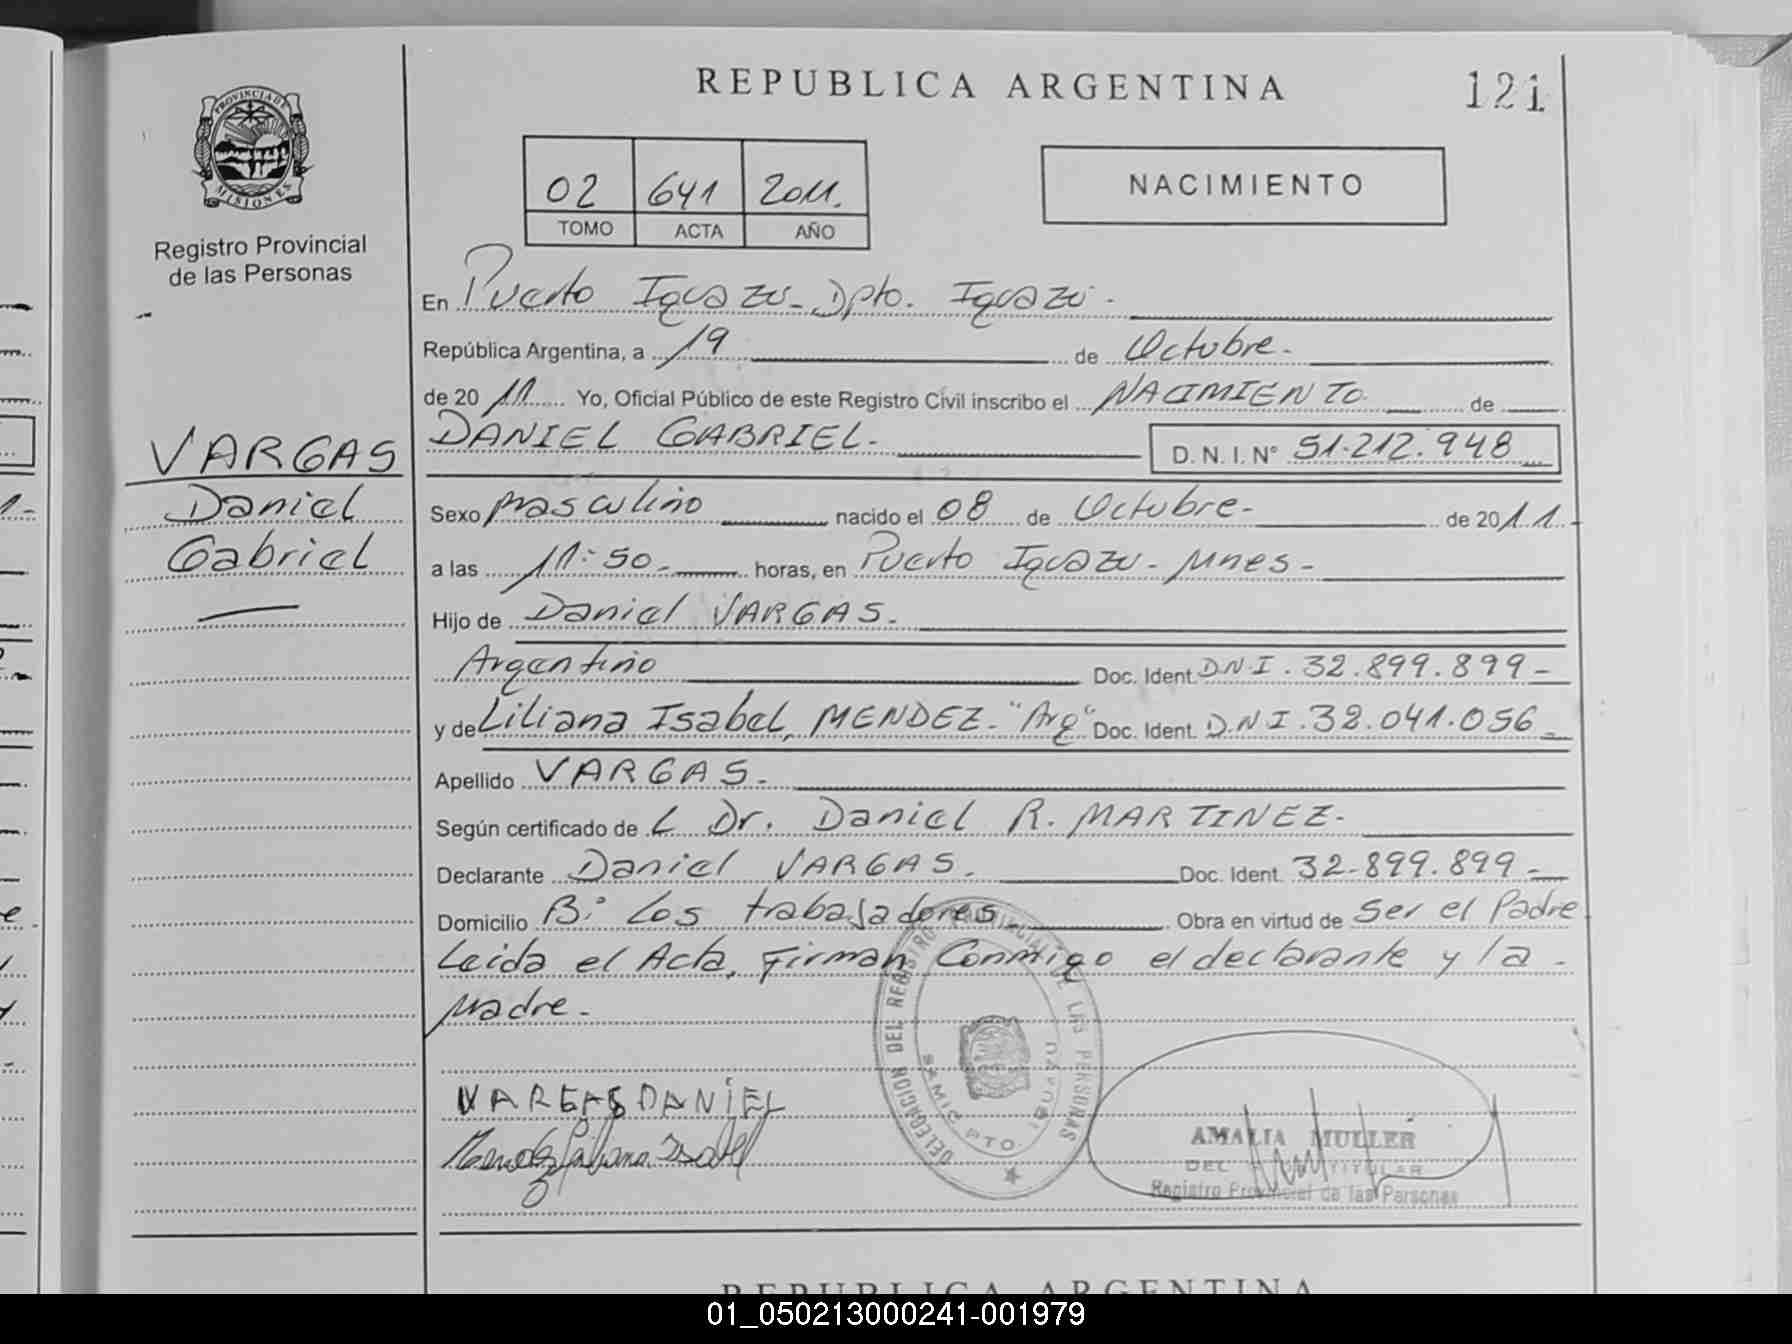 REPUBLICA ARGENTINA
121
PROVINCIA DE
MISIONES
Registro Provincial
de las Personas
02 641 2011.
TOMO ACTA AÑO
NACIMIENTO
En Puerto Iguazu- Dpto. Iguazú.
República Argentina, a 19 de Octubre.
de 2011 Yo, Oficial Público de este Registro Civil inscribo el NACIMIENTO de
VARGAS
Daniel
Gabriel
DANIEL GABRIEL.
D. N. I. N° 51.212.948
Sexo masculino nacido el 08 de Octubre- de 2011.
a las 11:50- horas, en Puerto Iguazu- Mnes-
Hijo de Daniel VARGAS.
Argentino Doc. Ident. DNI. 32.899.899-
y de Liliana Isabel, MENDEZ- "Arg" Doc. Ident. D.N I.32.041.056
Apellido VARGAS.
Según certificado de L Dr. Daniel R. MARTINEZ-
Declarante Daniel VARGAS. Doc. Ident. 32-899.899-
Domicilio B: Los trabajadores Obra en virtud de Ser el Padre
Leida el Acta, Firman Conmigo el declarante y la -
Madre-
VARGAS DANIEL
Mendez Liliana Isabel
DELEGACION DEL REGISTRO PROVINCIAL DE LAS PERSONAS
SAMIC PTO. IGUAZU
AMALIA MULLER
DEL TITULAR
Registro Provincial de las Personas
REPUBLICA ARGENTINA
01_050213000241-001979